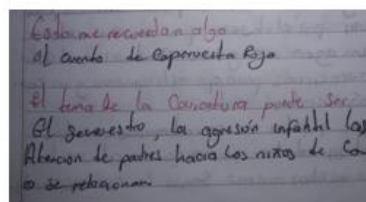 Esto me recuerdan algo
al cuento de Caperucita Roja
El tema de la Caricatura puede ser
El secuestro, la agresión infantil las
Atención de padres hacia los niños de
o se relacionan